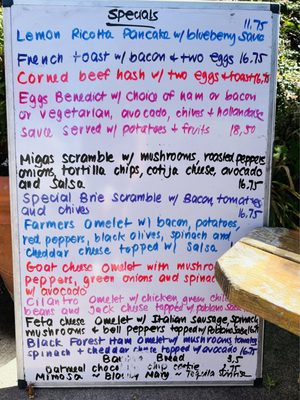 Specials
11.75
Lemon Ricotta Pancake w/ blueberry sauce
French toast w/ bacon & two eggs 16.75
Corned beef hash w/ two eggs & toast 16.75
Eggs Benedict w/ choice of ham or bacon
or vegetarian, avocado, chives & hollandaise
sauce served w/ potatoes & fruits 18,50
Migas scramble w/ mushrooms, roasted peppers
onions, tortilla chips, cotija cheese, avocado
and Salsa 16.75
Special Brie Scramble w/ Bacon, tomatoes
and chives 16.75
Farmers Omelet w/ bacon, potatoes,
red peppers, black olives, spinach and
cheddar cheese topped w/ salsa
Goat cheese omelet with mushroo
peppers, green onions and spinac
w/ avocado
Cilantro Omelet w/ chicken, green chili
beans and Jack cheese topped w/
Feta cheese Omelet w/ Italian sausage, spinach
mushrooms & bell peppers topped w/ 16.75
Black Forest Ham Omelet w/ mushrooms tomatoes
spinach & cheddar cheese topped w/ avocado 16.75
Bread 3,5
Oatmeal chocolate chip cookie
Mimosa ~ Bloody Mary ~ Tequila Sunrise